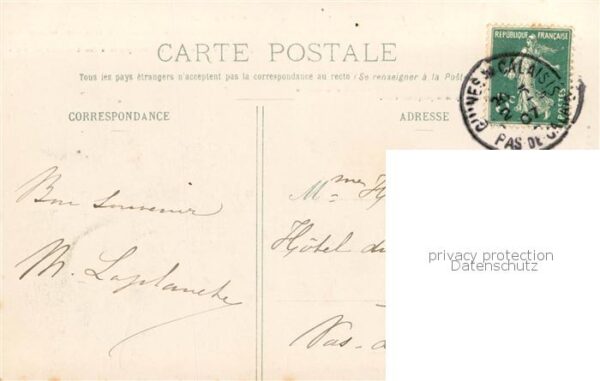 RÉPUBLIQUE FRANÇAISE
CARTE POSTALE
Tous les pays étrangers n'acceptent pas la correspondance au recto (Se renseigner à la Poste
CORRESPONDANCE
ADRESSE
CALAISIS
07
PAS-DE-CALAIS
Bon souvenir
M. Laplanche
Mmes
Hôtel du
Pas-
privacy protection
Datenschutz